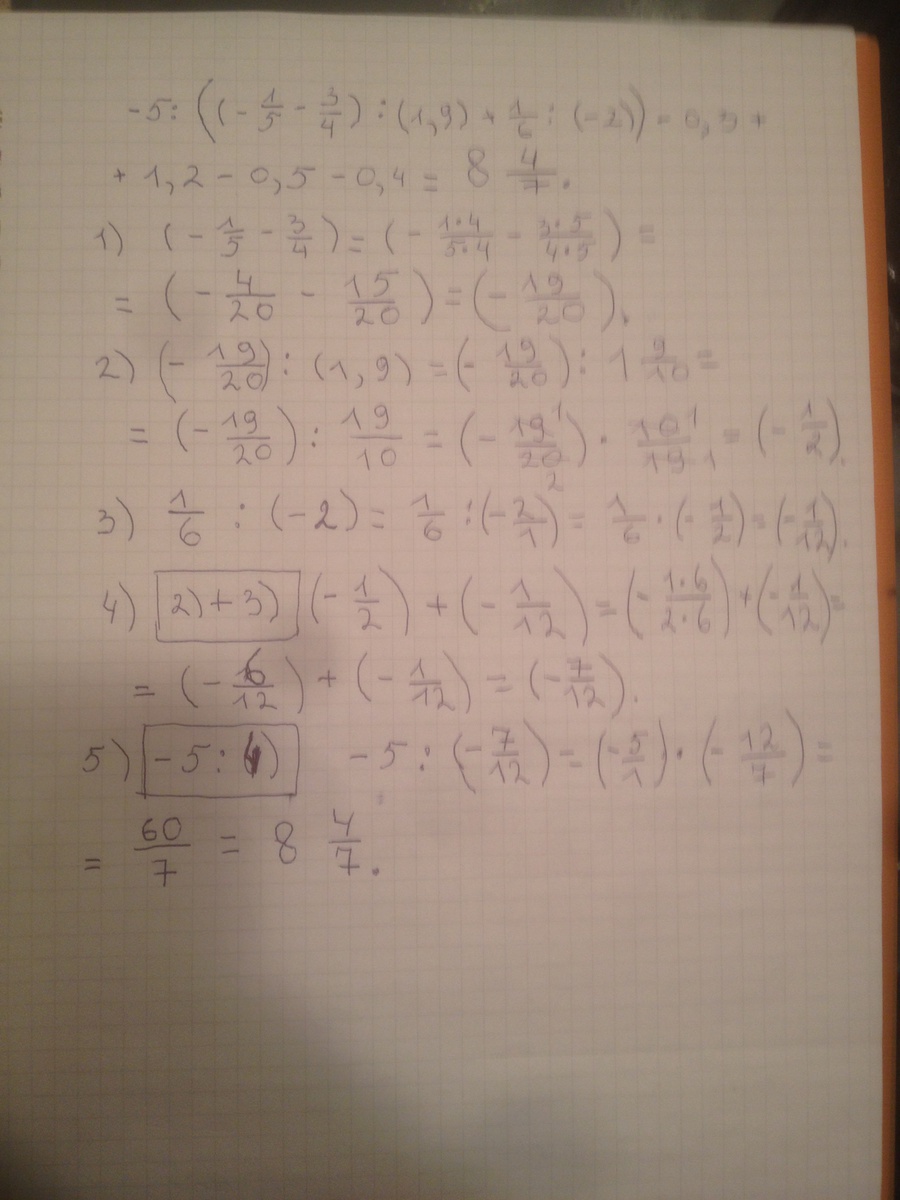 -5 : ((-1/5 - 3/4) : (1,9) + 1/6 : (-2)) = 0,9 +
+ 1,2 - 0,5 - 0,4 = 8 4/7.
1) (-1/5 - 3/4) = (- 1·4/5·4 - 3·5/4·5) =
= (- 4/20 - 15/20) = (- 19/20).
2) (- 19/20) : (1,9) = (- 19/20) : 1 9/10 =
= (- 19/20) : 19/10 = (- 19¹/20₂) · 10¹/19₁ = (- 1/2).
3) 1/6 : (-2) = 1/6 : (- 2/1) = 1/6 · (- 1/2) = (- 1/12).
4) 2) + 3) (- 1/2) + (- 1/12) = (- 1·6/2·6) + (- 1/12) =
= (- 6/12) + (- 1/12) = (- 7/12).
5) -5 : 4) -5 : (- 7/12) = (- 5/1) · (- 12/7) =
= 60/7 = 8 4/7.